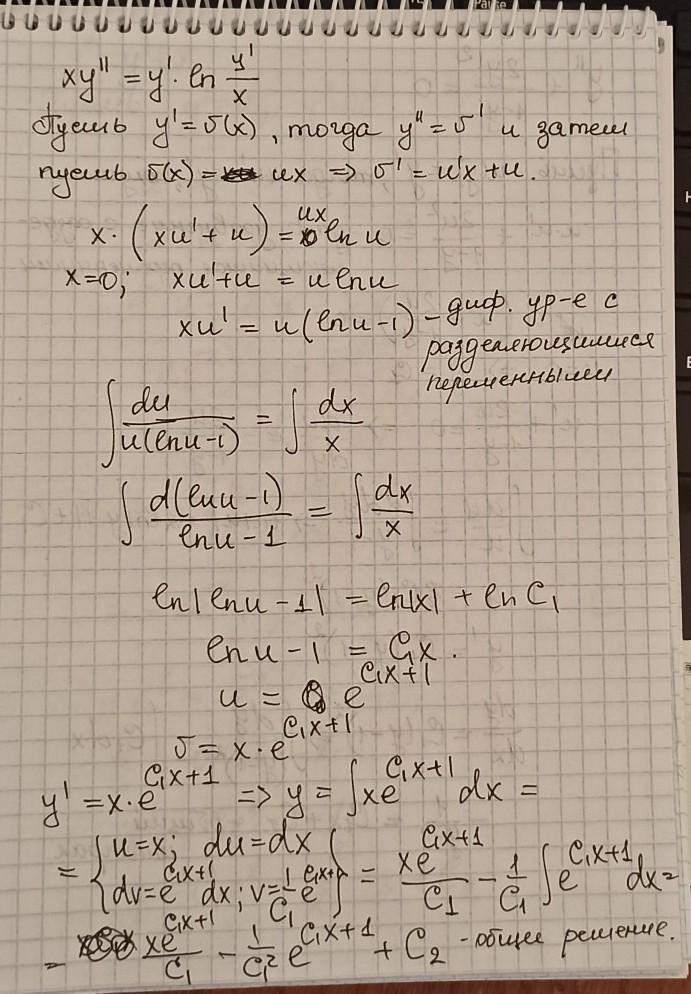 xy'' = y' · ln y'/x
Пусть y' = v(x), тогда y'' = v' и затем
пусть v(x) = ux => v' = u'x + u.
x · (xu' + u) = ux ln u
x=0; xu' + u = u ln u
xu' = u(ln u - 1) - диф. ур-е с
разделяющимися
переменными
∫ du/(u(ln u - 1)) = ∫ dx/x
∫ d(ln u - 1)/(ln u - 1) = ∫ dx/x
ln|ln u - 1| = ln|x| + ln C₁
ln u - 1 = C₁x.
u = e^(C₁x+1)
v = x · e^(C₁x+1)
y' = x · e^(C₁x+1) => y = ∫ xe^(C₁x+1) dx =
= {u = x; du = dx
dv = e^(C₁x+1) dx; v = 1/C₁ e^(C₁x+1)} = xe^(C₁x+1)/C₁ - 1/C₁ ∫ e^(C₁x+1) dx =
= xe^(C₁x+1)/C₁ - 1/C₁² e^(C₁x+1) + C₂ - общее решение.